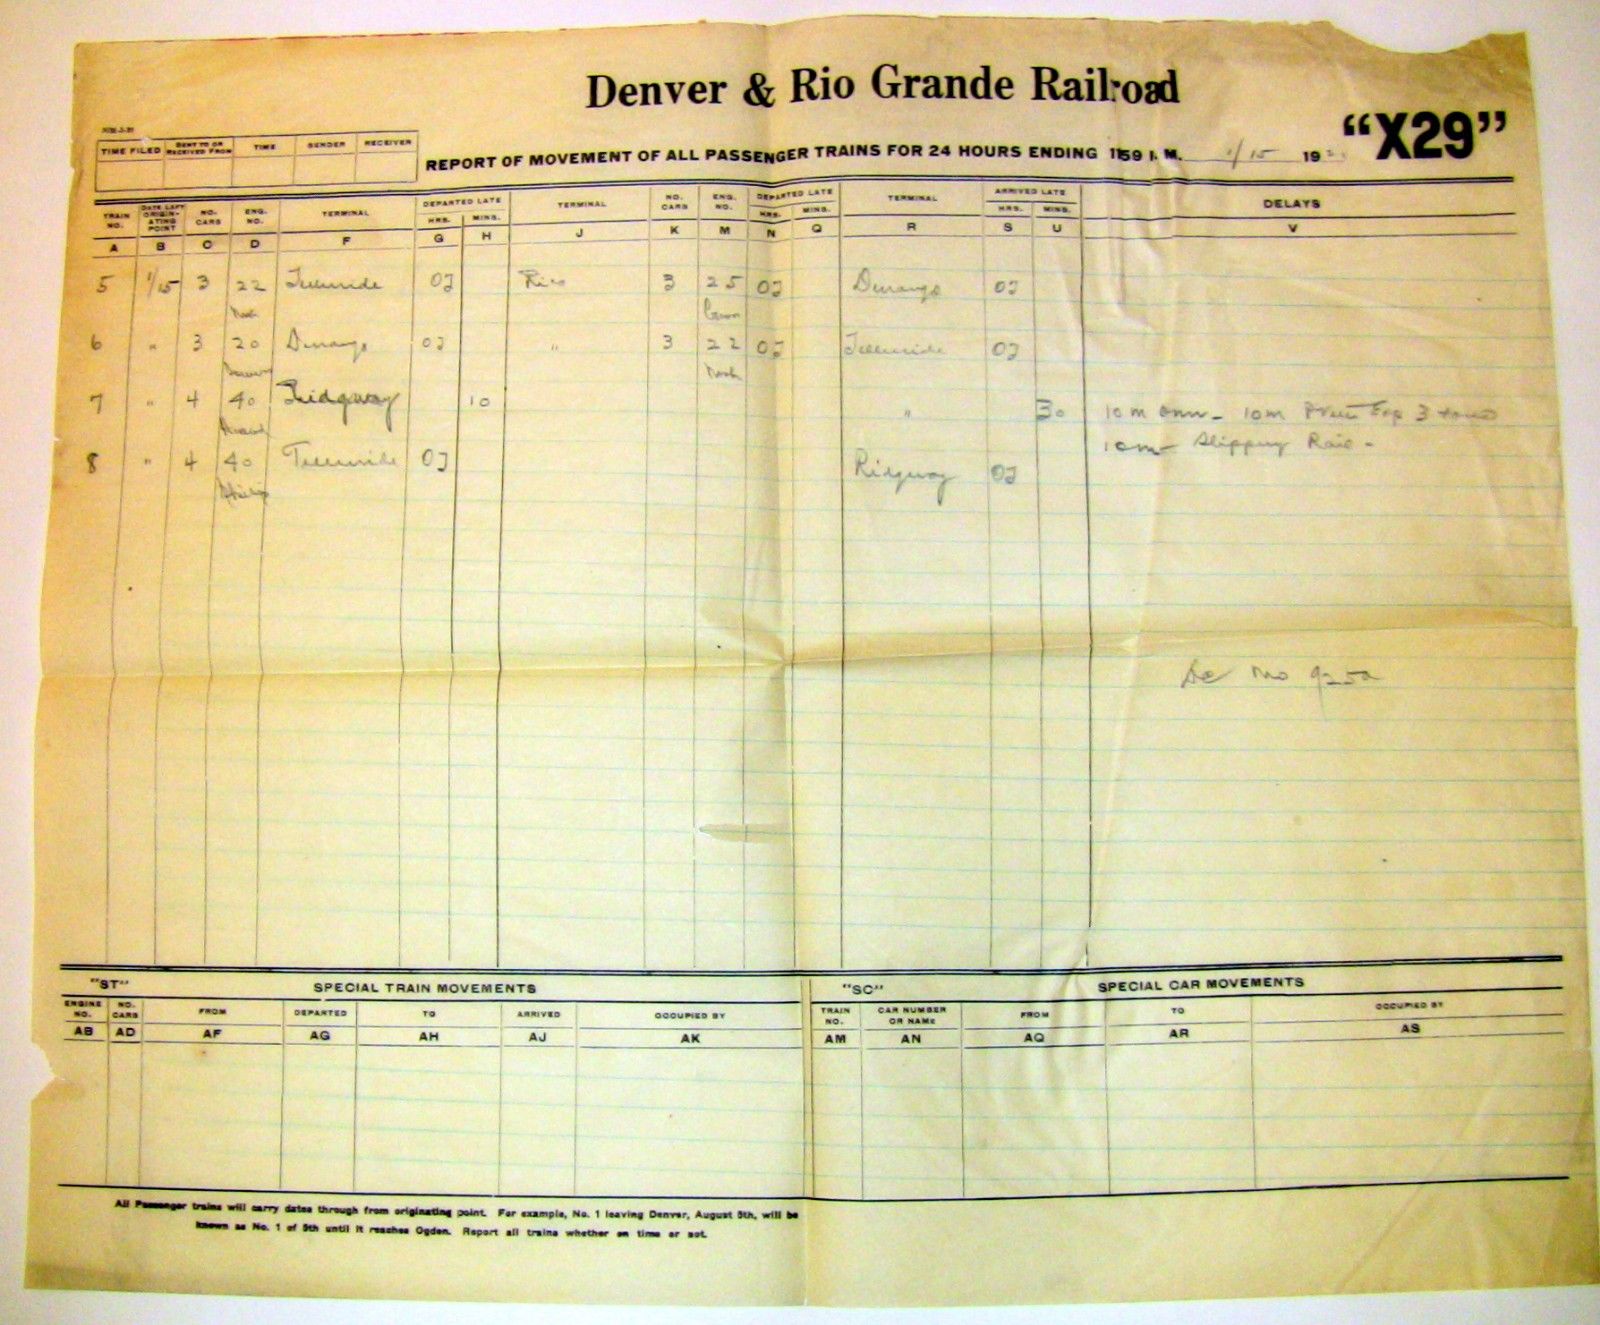 Denver & Rio Grande Railroad
"X29"
TIME FILED SENT TO OR RECEIVED FROM TIME SENDER RECEIVER
REPORT OF MOVEMENT OF ALL PASSENGER TRAINS FOR 24 HOURS ENDING 1159 P. M. 1/15 19
TRAIN NO. DATE LEFT ORIGINATING POINT NO. CARS ENG. NO. TERMINAL DEPARTED LATE HRS. MINS. TERMINAL NO. CARS ENG. NO. DEPARTED LATE HRS. MINS. TERMINAL ARRIVED LATE HRS. MINS. DELAYS
A B C D F G H J K M N Q R S U V
5 1/15 3 22 Telluride OT Rico 3 25 OT Durango OT
6 " 3 20 Durango OT " 3 22 OT Telluride OT
7 " 4 40 Ridgway 10 " 30 10m 10m 3
10m Slippery Rail -
8 " 4 40 Telluride OT Ridgway OT
"ST" SPECIAL TRAIN MOVEMENTS "SC" SPECIAL CAR MOVEMENTS
ENGINE NO. NO. CARS FROM DEPARTED TO ARRIVED OCCUPIED BY TRAIN NO. CAR NUMBER OR NAME FROM TO OCCUPIED BY
AB AD AF AG AH AJ AK AM AN AQ AR AS
All Passenger trains will carry dates through from originating point. For example, No. 1 leaving Denver, August 5th, will be
known as No. 1 of 5th until it reaches Ogden. Report all trains whether on time or not.